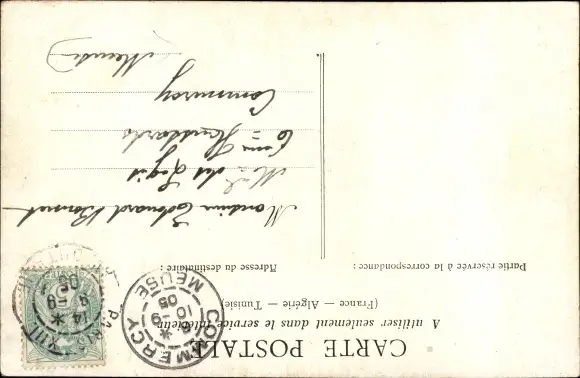 CARTE POSTALE
A utiliser seulement dans le service intérieur
(France — Algérie — Tunisie)
Partie réservée à la correspondance :
Adresse du destinataire :
Monsieur Edouard Bonnet
Mal des Logis
6eme Hussards
Commercy
(Meuse)
COMMERCY
MEUSE
10
05
PARIS XIII
14 59
9
05